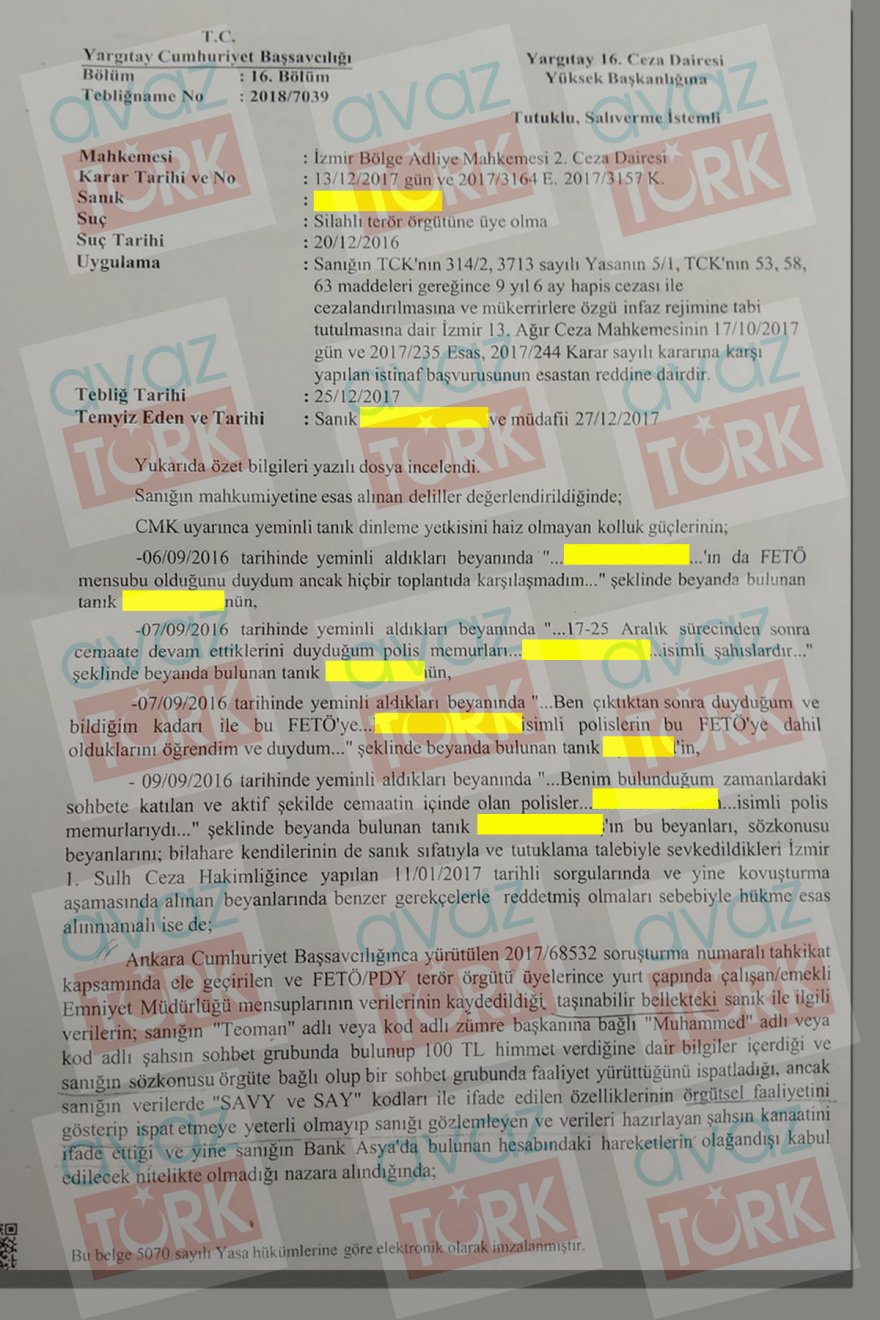 T.C.
Yargıtay Cumhuriyet Başsavcılığı
Bölüm : 16. Bölüm
Tebliğname No : 2018/7039
Yargıtay 16. Ceza Dairesi
Yüksek Başkanlığına
Tutuklu, Salıverme İstemli
Mahkemesi : İzmir Bölge Adliye Mahkemesi 2. Ceza Dairesi
Karar Tarihi ve No : 13/12/2017 gün ve 2017/3164 E. 2017/3157 K.
Sanık :
Suç : Silahlı terör örgütüne üye olma
Suç Tarihi : 20/12/2016
Uygulama : Sanığın TCK'nın 314/2, 3713 sayılı Yasanın 5/1, TCK'nın 53, 58,
63 maddeleri gereğince 9 yıl 6 ay hapis cezası ile
cezalandırılmasına ve mükerrirlere özgü infaz rejimine tabi
tutulmasına dair İzmir 13. Ağır Ceza Mahkemesinin 17/10/2017
gün ve 2017/235 Esas, 2017/244 Karar sayılı kararına karşı
yapılan istinaf başvurusunun esastan reddine dairdir.
Tebliğ Tarihi : 25/12/2017
Temyiz Eden ve Tarihi : Sanık ve müdafii 27/12/2017
Yukarıda özet bilgileri yazılı dosya incelendi.
Sanığın mahkumiyetine esas alınan deliller değerlendirildiğinde;
CMK uyarınca yeminli tanık dinleme yetkisini haiz olmayan kolluk güçlerinin;
-06/09/2016 tarihinde yeminli aldıkları beyanında "... ...'ın da FETÖ
mensubu olduğunu duydum ancak hiçbir toplantıda karşılaşmadım..." şeklinde beyanda bulunan
tanık nün,
-07/09/2016 tarihinde yeminli aldıkları beyanında "...17-25 Aralık sürecinden sonra
cemaate devam ettiklerini duyduğum polis memurları... ...isimli şahıslardır..."
şeklinde beyanda bulunan tanık ün,
-07/09/2016 tarihinde yeminli aldıkları beyanında "...Ben çıktıktan sonra duyduğum ve
bildiğim kadarı ile bu FETÖ'ye... isimli polislerin bu FETÖ'ye dahil
olduklarını öğrendim ve duydum..." şeklinde beyanda bulunan tanık 'in,
- 09/09/2016 tarihinde yeminli aldıkları beyanında "...Benim bulunduğum zamanlardaki
sohbete katılan ve aktif şekilde cemaatin içinde olan polisler... ...isimli polis
memurlarıydı..." şeklinde beyanda bulunan tanık 'ın bu beyanları, sözkonusu
beyanlarını; bilahare kendilerinin de sanık sıfatıyla ve tutuklama talebiyle sevkedildikleri İzmir
1. Sulh Ceza Hakimliğince yapılan 11/01/2017 tarihli sorgularında ve yine kovuşturma
aşamasında alınan beyanlarında benzer gerekçelerle reddetmiş olmaları sebebiyle hükme esas
alınmamalı ise de;
Ankara Cumhuriyet Başsavcılığınca yürütülen 2017/68532 soruşturma numaralı tahkikat
kapsamında ele geçirilen ve FETÖ/PDY terör örgütü üyelerince yurt çapında çalışan/emekli
Emniyet Müdürlüğü mensuplarının verilerinin kaydedildiği taşınabilir bellekteki sanık ile ilgili
verilerin; sanığın "Teoman" adlı veya kod adlı zümre başkanına bağlı "Muhammed" adlı veya
kod adlı şahsın sohbet grubunda bulunup 100 TL himmet verdiğine dair bilgiler içerdiği ve
sanığın sözkonusu örgüte bağlı olup bir sohbet grubunda faaliyet yürüttüğünü ispatladığı, ancak
sanığın verilerde "SAVY ve SAY" kodları ile ifade edilen özelliklerinin örgütsel faaliyetini
gösterip ispat etmeye yeterli olmayıp sanığı gözlemleyen ve verileri hazırlayan şahsın kanaatini
ifade ettiği ve yine sanığın Bank Asya'da bulunan hesabındaki hareketlerin olağandışı kabul
edilecek nitelikte olmadığı nazara alındığında;
Bu belge 5070 sayılı Yasa hükümlerine göre elektronik olarak imzalanmıştır.
avaz
TÜRK